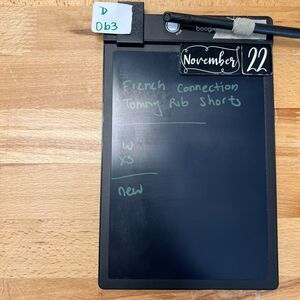 D
Db3
boog
November 22
French Connection
Tommy Rib Shorts
W
XS
new